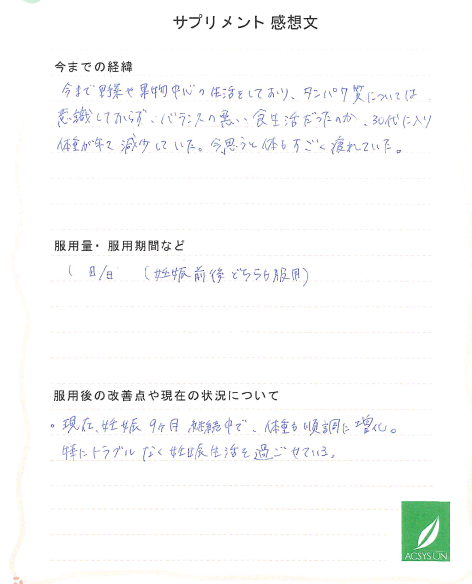 サプリメント 感想文
今までの経緯
今まで野菜や果物中心の生活をしており、タンパク質については
意識しておらず、バランスの悪い食生活だったのか、30代に入り
体重が年々減少していた。今思うと体もすごく疲れていた。
服用量・服用期間など
1日/日 (妊娠前後どちらも服用)
服用後の改善点や現在の状況について
。現在、妊娠9ヶ月継続中で、体重も順調に増化。
特にトラブルなく妊娠生活を過ごせている。
ACSYS ON